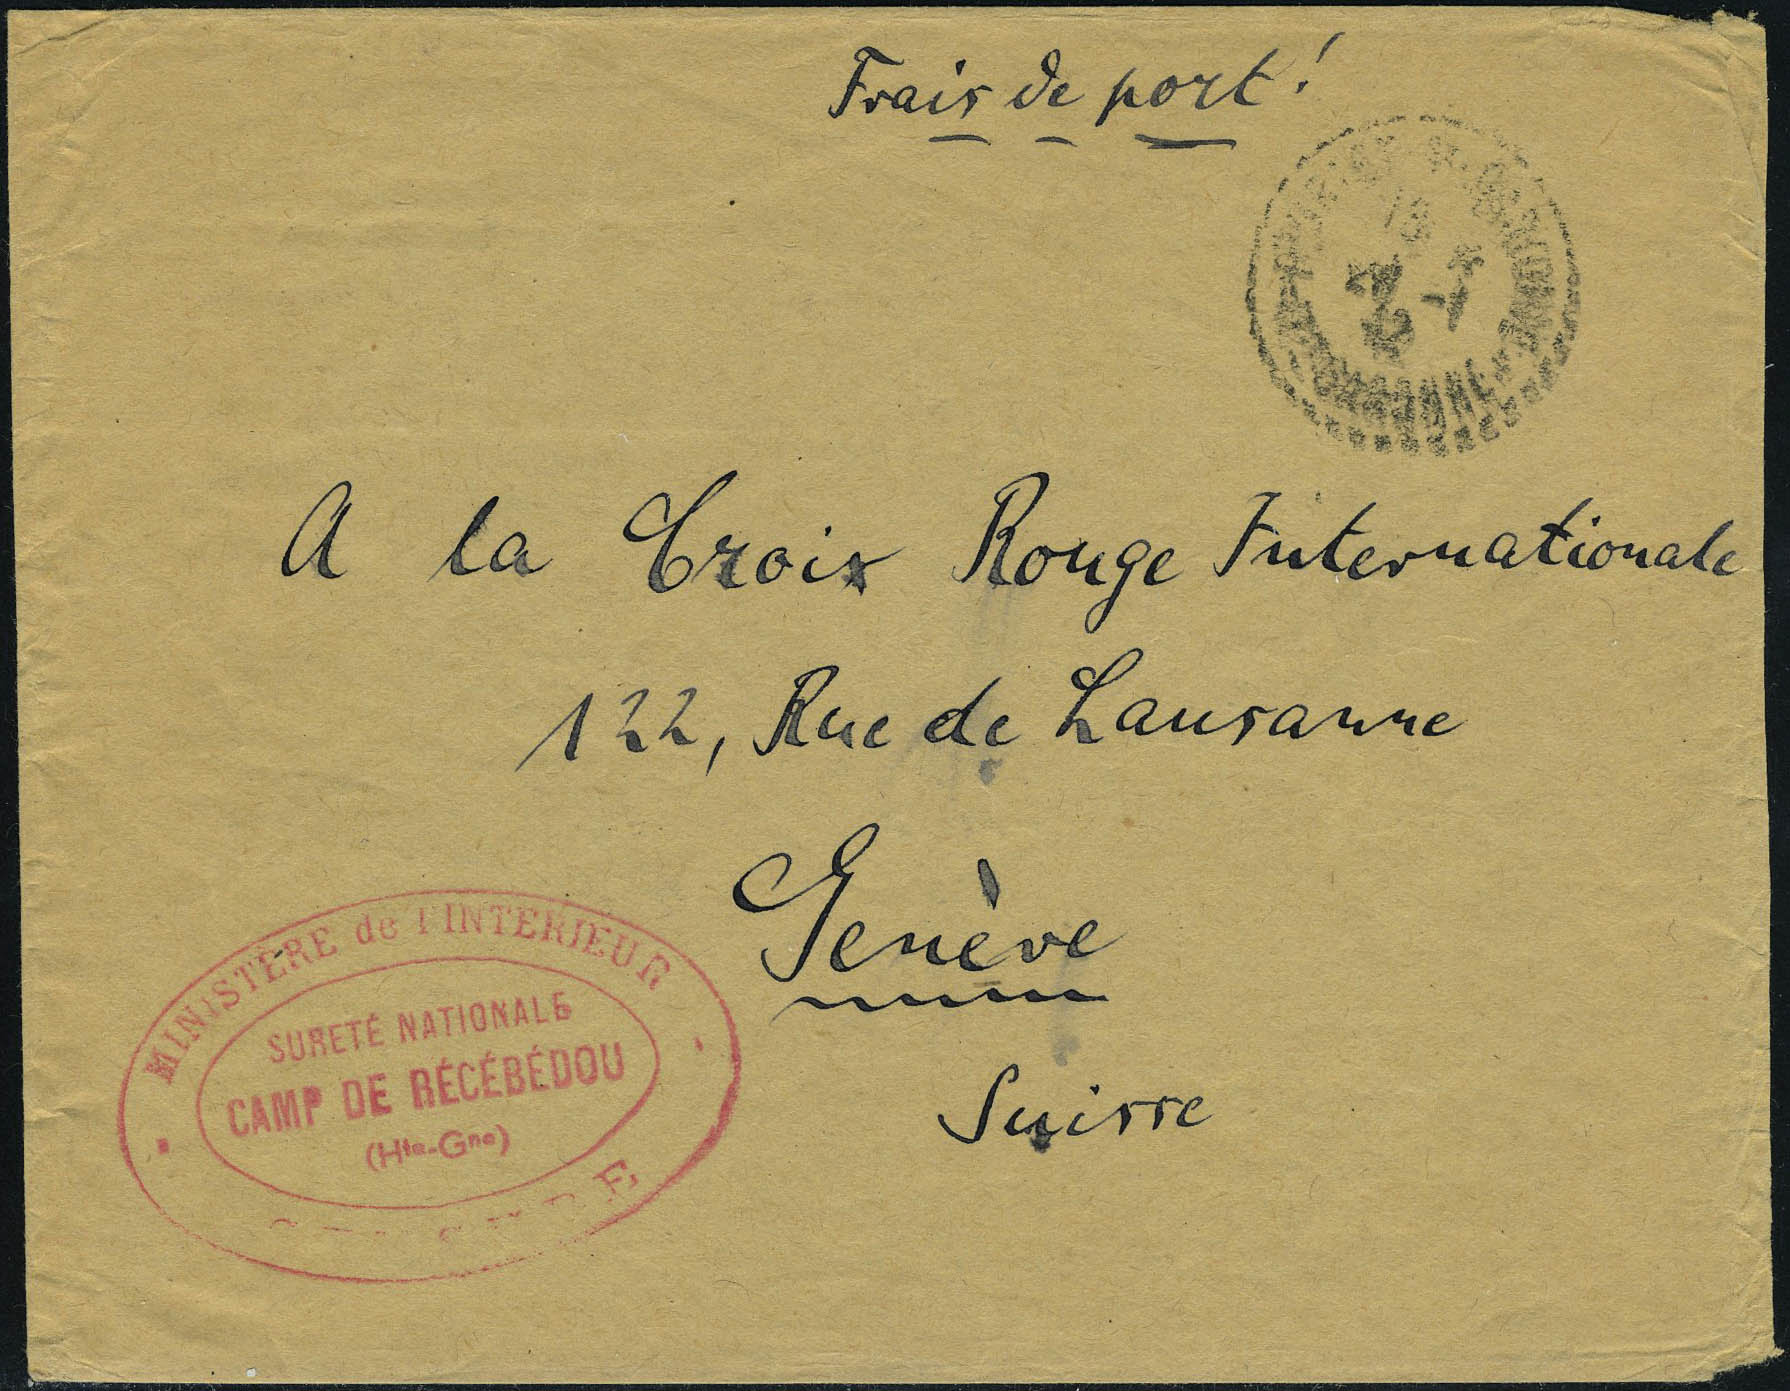 Frais de port!
A la Croix Rouge Internationale
122, Rue de Lausanne
Genève
Suisse
MINISTÈRE de l'INTERIEUR
SURETÉ NATIONALE
CAMP DE RÉCÉBÉDOU
(Hte-Gne)